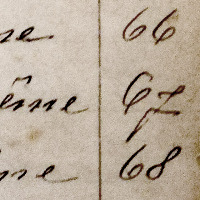 me 66
ême 67
me 68